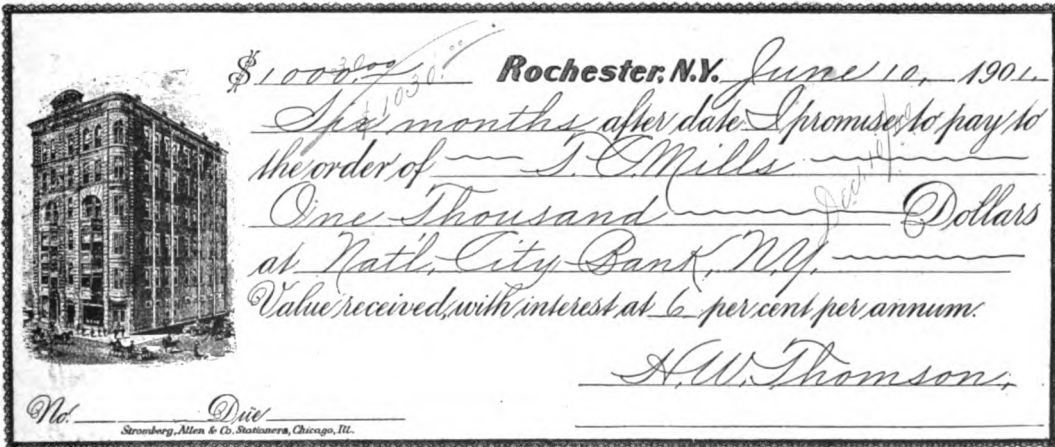 $1000.00 Rochester, N.Y. June 10, 1901.
30.00
1030.00
Six months after date I promise to pay to
the order of T. C. Mills
One Thousand Dollars
Dec. 10/01
at Nat'l. City Bank, N.Y.
Value received, with interest at 6 per cent per annum.
H. W. Thomson,
No. Due
Stromberg, Allen & Co. Stationers, Chicago, Ill.